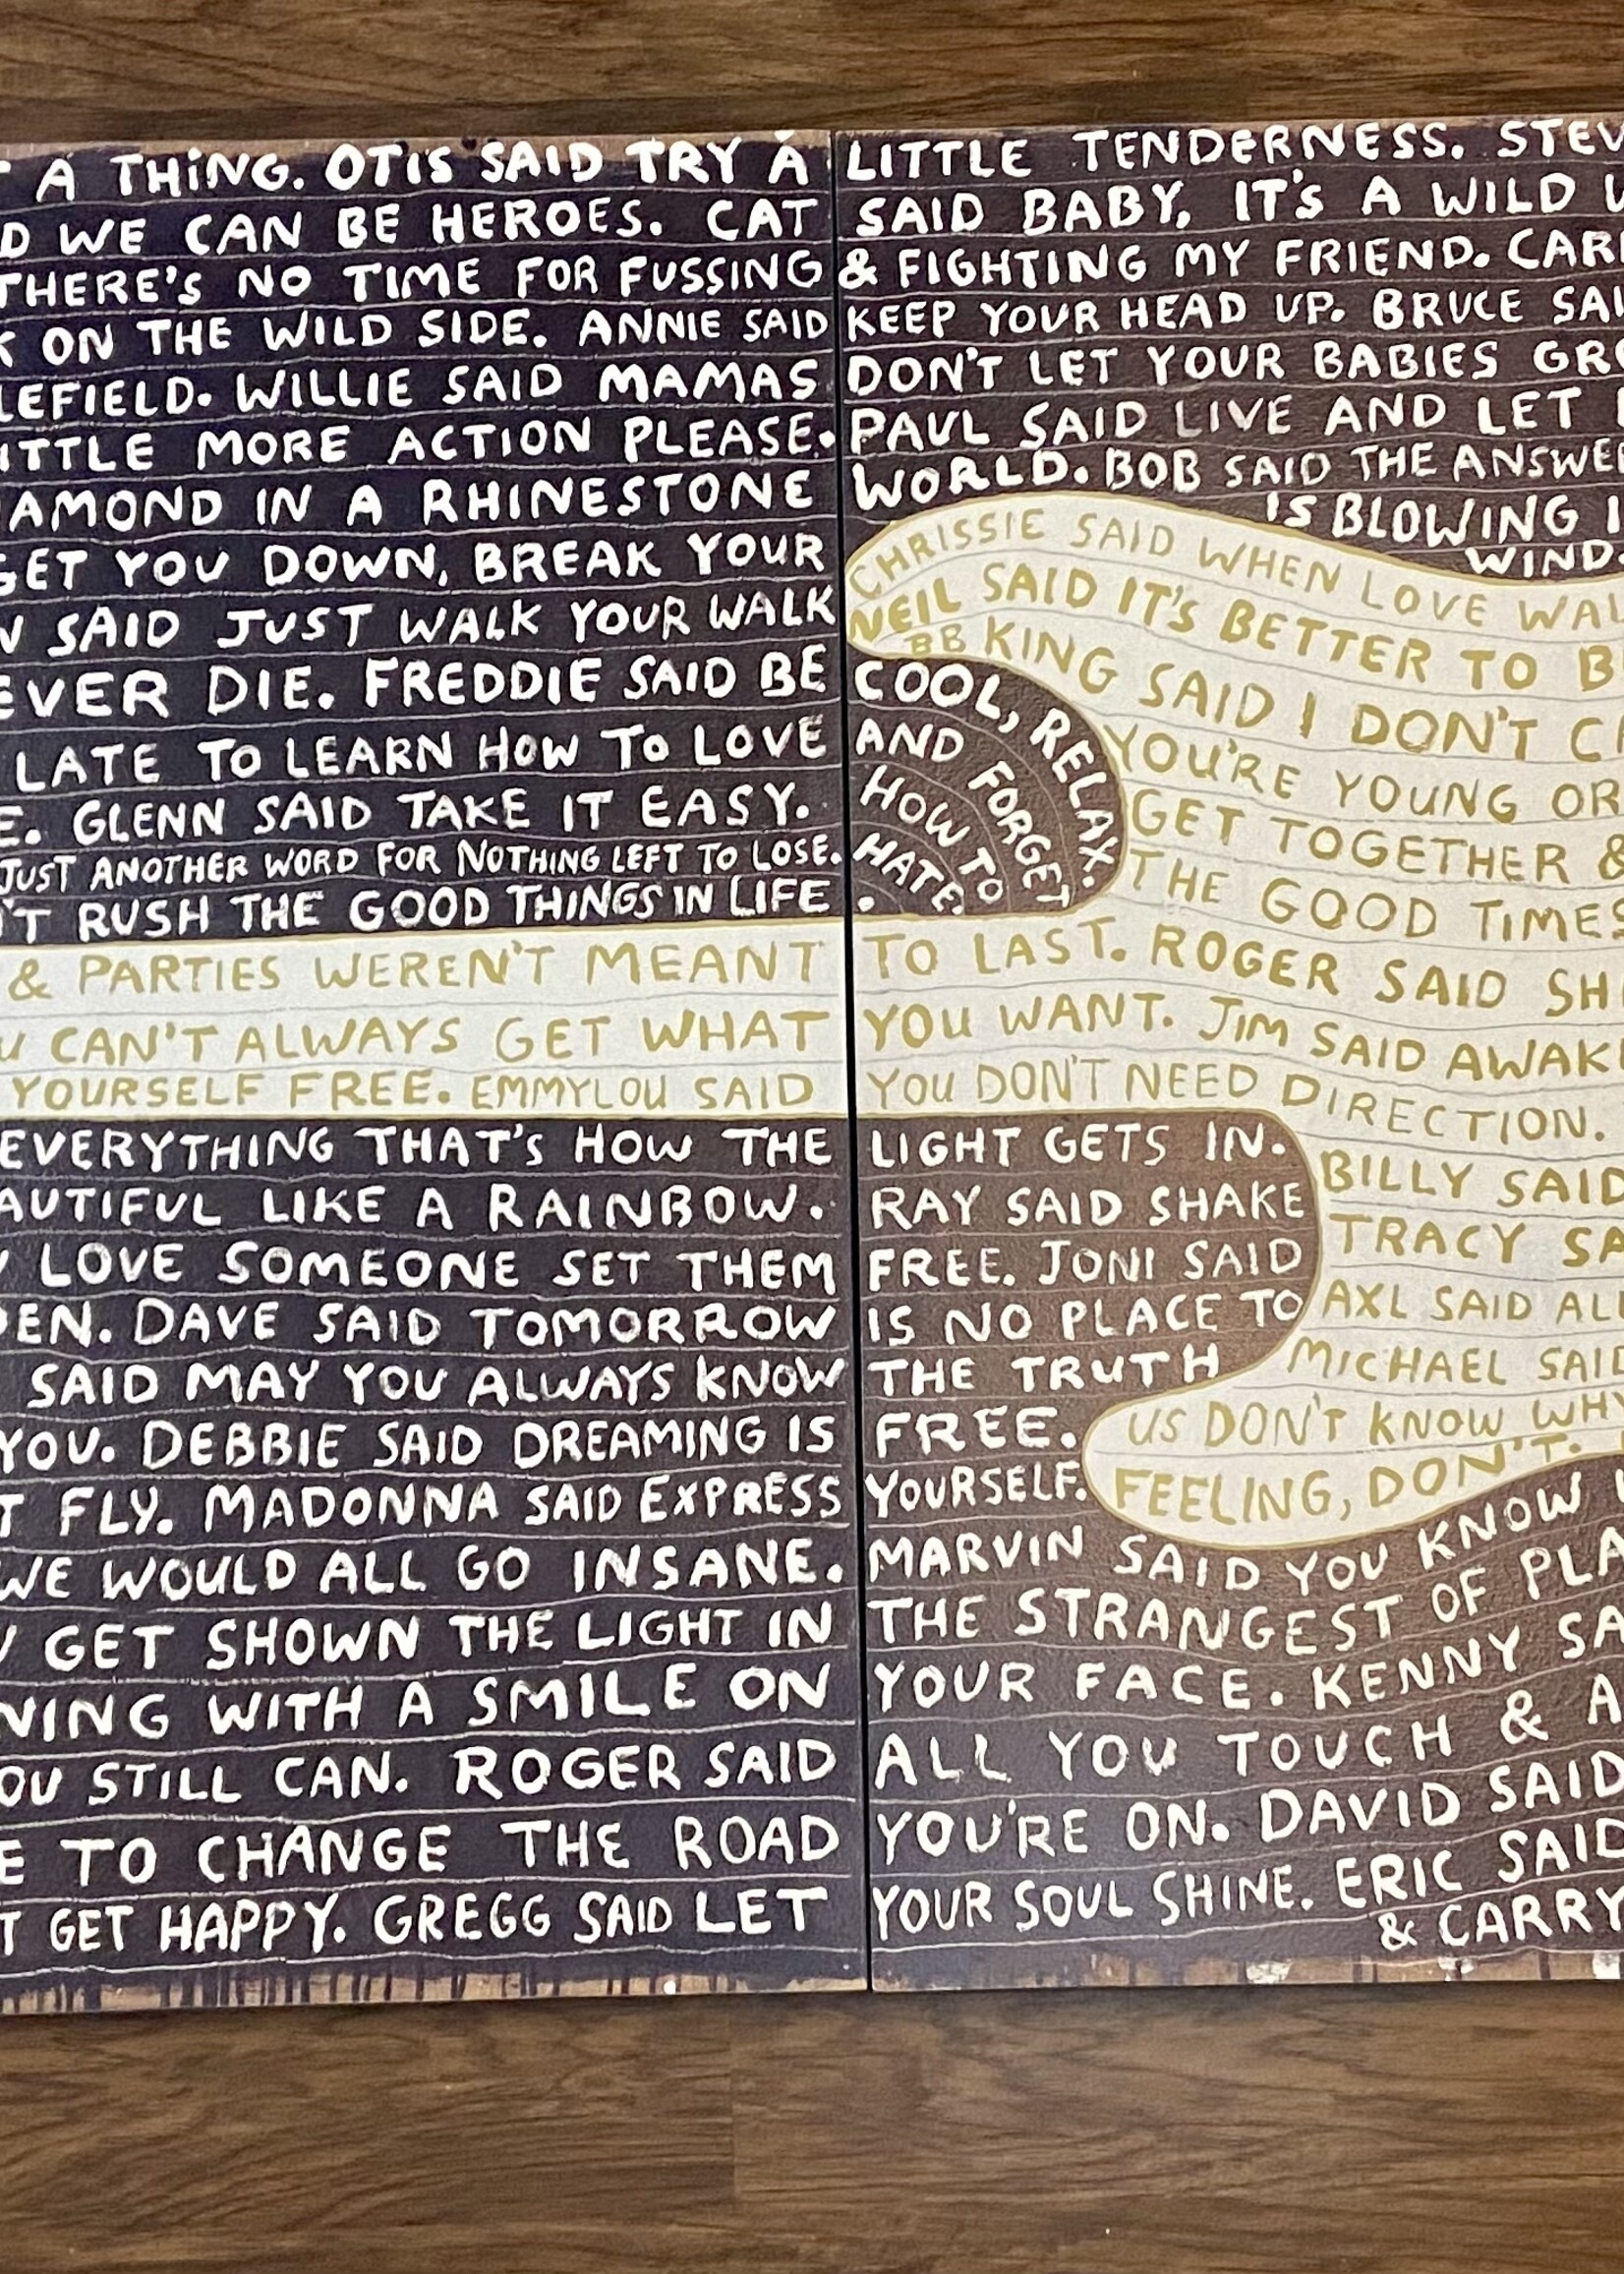 A THING. OTIS SAID TRY A LITTLE TENDERNESS. STEV
D WE CAN BE HEROES. CAT SAID BABY, IT'S A WILD W
THERE'S NO TIME FOR FUSSING & FIGHTING MY FRIEND. CAR
K ON THE WILD SIDE. ANNIE SAID KEEP YOUR HEAD UP. BRUCE SAI
LEFIELD. WILLIE SAID MAMAS DON'T LET YOUR BABIES GRO
ITTLE MORE ACTION PLEASE. PAUL SAID LIVE AND LET
AMOND IN A RHINESTONE WORLD. BOB SAID THE ANSWE
IS BLOWING I
WIND
GET YOU DOWN, BREAK YOUR CHRISSIE SAID WHEN LOVE WAL
N SAID JUST WALK YOUR WALK NEIL SAID IT'S BETTER TO B
BB KING SAID I DON'T C
EVER DIE. FREDDIE SAID BE COOL, RELAX.
YOU'RE YOUNG OR
LATE TO LEARN HOW TO LOVE AND FORGET
GET TOGETHER &
E. GLENN SAID TAKE IT EASY. HOW TO
THE GOOD TIMES
JUST ANOTHER WORD FOR NOTHING LEFT TO LOSE. HATE.
'T RUSH THE GOOD THINGS IN LIFE.
& PARTIES WEREN'T MEANT TO LAST. ROGER SAID SH
U CAN'T ALWAYS GET WHAT YOU WANT. JIM SAID AWAK
YOURSELF FREE. EMMYLOU SAID YOU DON'T NEED DIRECTION.
EVERYTHING THAT'S HOW THE LIGHT GETS IN. BILLY SAID
AUTIFUL LIKE A RAINBOW. RAY SAID SHAKE TRACY SA
Y LOVE SOMEONE SET THEM FREE. JONI SAID AXL SAID AL
EN. DAVE SAID TOMORROW IS NO PLACE TO
SAID MAY YOU ALWAYS KNOW THE TRUTH MICHAEL SAID
YOU. DEBBIE SAID DREAMING IS FREE. US DON'T KNOW WH
T FLY. MADONNA SAID EXPRESS YOURSELF. FEELING, DON'T.
WE WOULD ALL GO INSANE. MARVIN SAID YOU KNOW
Y GET SHOWN THE LIGHT IN THE STRANGEST OF PLA
NING WITH A SMILE ON YOUR FACE. KENNY SA
OU STILL CAN. ROGER SAID ALL YOU TOUCH & A
E TO CHANGE THE ROAD YOU'RE ON. DAVID SAID
T GET HAPPY. GREGG SAID LET YOUR SOUL SHINE. ERIC SAID
& CARRY